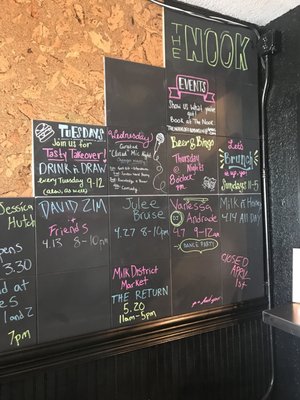 THE NOOK
EVENTS
Show us
what you've got
Book at The Nook
TUESDAYS
Join us for
Tasty Takeover!
DRINK n DRAW
every Tuesday 9-12
Wednesday's
Curated
Mic Night
Beer & Bingo
Thursday
Nights
8 o'clock
Let's
Brunch
Sundays 11-5
Jessica
Hutch
opens
3.30
and at
1 and 2
7pm
DAVID ZIM
+
Friends
4.13 8-10pm
Julee
Bruse
4.27 8-10pm
Milk District
Market
THE RETURN
5.20
11am-5pm
Vanessa
Andrade
4.7
DANCE PARTY
Milk n Honey
4.14 All DAY
CLOSED
APRIL
1st